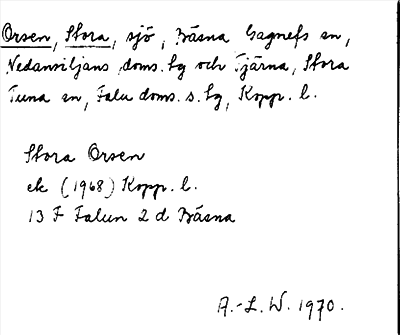 Orsen, Stora, sjö, Bäsna Gagnefs sn,
Nedansiljans doms. lg och Tjärna, Stora
Tuna sn, Falu doms. s. lg, Kopp. l.
Stora Orsen
ek (1968) Kopp. l.
13 F Falun 2 d Bäsna
A.-L. W. 1970.